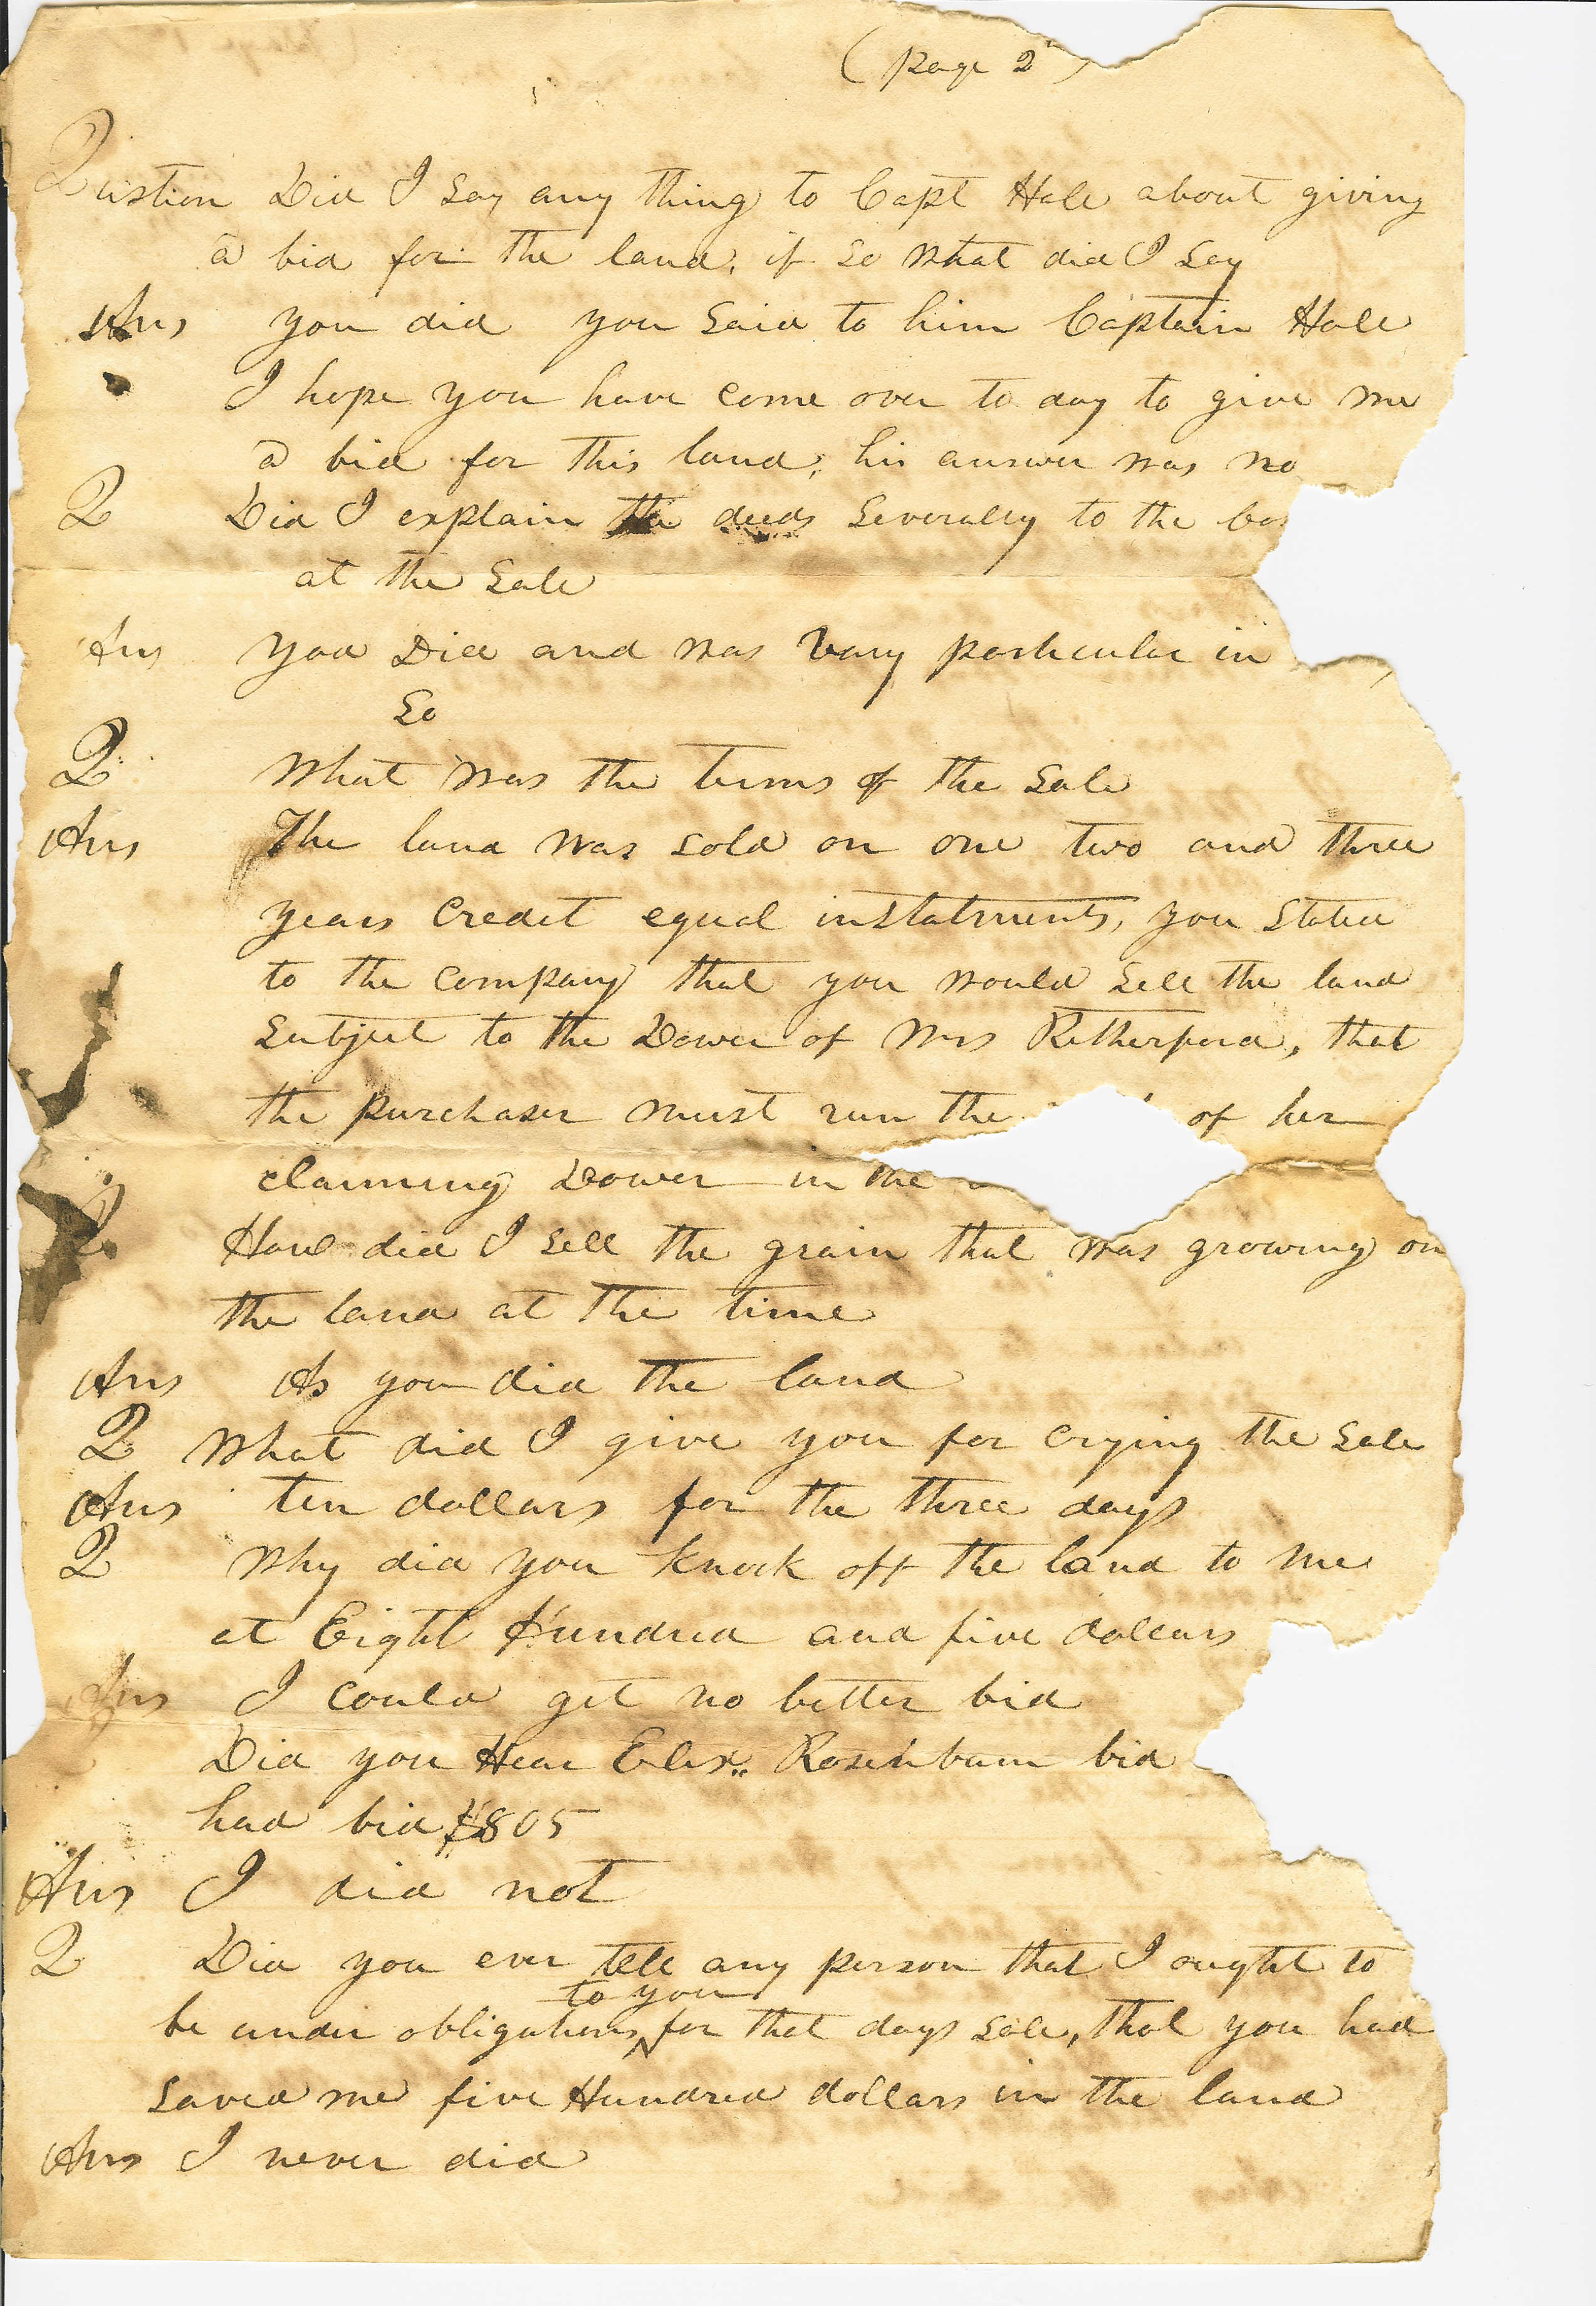 (page 2)
Question Did I say any thing to Capt Hale about giving
a bid for the land, if so what did I say
Ans you did you said to him Captain Hale
I hope you have come over to day to give me
a bid for this land, his answer was no
Q Did I explain the deeds severally to the
at the sale
Ans you Did and was vary particular in
So
Q What was the terms of the sale
Ans The land was sold on one two and three
years credet equal instalments, you stated
to the company that you would sell the land
subject to the Dower of Mrs Retherford, that
the purchaser must run the of her
claiming Dower in the
Q How did I sell the grain that was growing on
the land at the time
Ans As you did the land
Q What did I give you for crying the sale
Ans ten dollars for the three days
Q Why did you knock off the land to me
at Eight Hundred and five dollars
Ans I could get no better bid
Did you Hear Elix Rosinbum bid
had bid $805
Ans I did not
Q Did you ever tell any person that I ought to
to you
be under obligations for that days sale, that you had
saved me five Hundred dollars in the land
Ans I never did